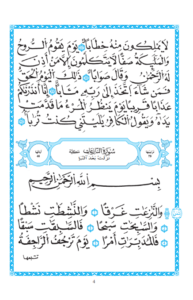 لَا يَمْلِكُونَ مِنْهُ خِطَابًا ۝ يَوْمَ يَقُومُ الرُّوحُ
وَالْمَلَائِكَةُ صَفًّا لَا يَتَكَلَّمُونَ إِلَّا مَنْ أَذِنَ
لَهُ الرَّحْمَٰنُ وَقَالَ صَوَابًا ۝ ذَٰلِكَ الْيَوْمُ الْحَقُّ
فَمَنْ شَاءَ اتَّخَذَ إِلَىٰ رَبِّهِ مَآبًا ۝ إِنَّا أَنْذَرْنَاكُمْ
عَذَابًا قَرِيبًا يَوْمَ يَنْظُرُ الْمَرْءُ مَا قَدَّمَتْ
يَدَاهُ وَيَقُولُ الْكَافِرُ يَا لَيْتَنِي كُنْتُ تُرَابًا ۝
سُورَةُ النَّازِعَاتِ مكية
نزلت بعد النبإ
بِسْمِ اللَّهِ الرَّحْمَٰنِ الرَّحِيمِ
وَالنَّازِعَاتِ غَرْقًا ۝ وَالنَّاشِطَاتِ نَشْطًا
۝ وَالسَّابِحَاتِ سَبْحًا ۝ فَالسَّابِقَاتِ سَبْقًا
۝ فَالْمُدَبِّرَاتِ أَمْرًا ۝ يَوْمَ تَرْجُفُ الرَّاجِفَةُ
تتبعها